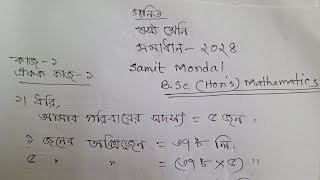 গনিত
ষষ্ঠ শ্রেনি
সমাধান - ২০২৪
কাজ-১
একক কাজ-১
Samit Mondal
B.Sc (Hon's) Mathematics
১। ধরি,
আমার পরিবারের সদস্য = ৫ জন।
১ জনের অক্সিজেন = ৩৭৮ লি.
৫ " " = (৩৭৮ × ৫) "